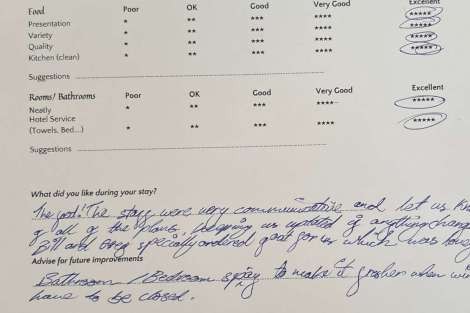 Food Poor OK Good Very Good Excellent
Presentation * ** *** **** *****
Variety * ** *** **** *****
Quality * ** *** **** *****
Kitchen (clean) * ** *** **** *****
Suggestions
Rooms/ Bathrooms Poor OK Good Very Good Excellent
Neatly * ** *** **** *****
Hotel Service
(Towels, Bed...) * ** *** **** *****
Suggestions
What did you like during your stay?
The food! The staff were very communicative and let us kn
of all of the plans, keeping us updated if anything chang
Bill and Greg specially ordered goat for us which was
Advise for future improvements
Bathroom / Bedroom spray to make it fresher when wi
have to be closed.